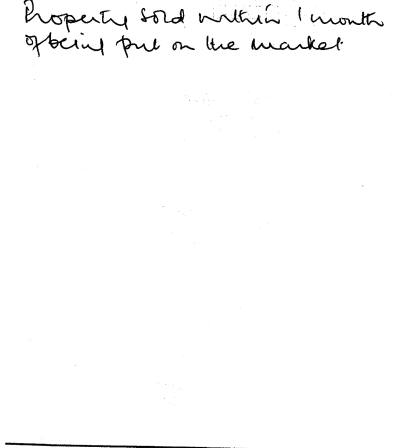 Property sold within 1 month
of being put on the market.